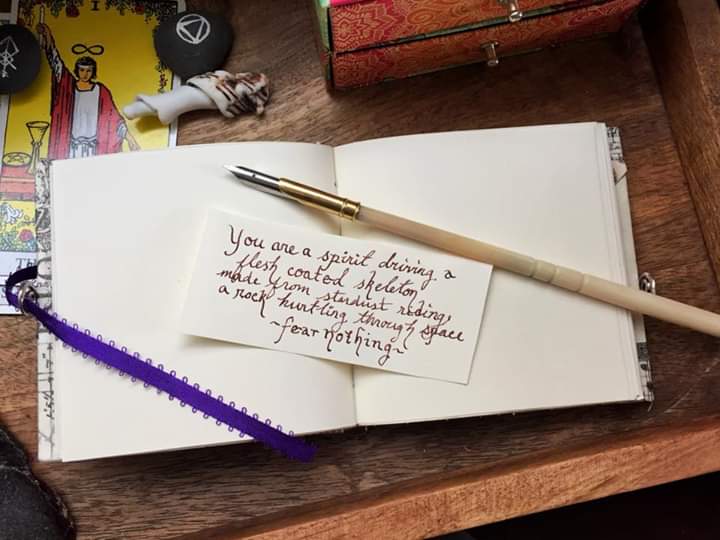 I
You are a spirit driving a
flesh coated skeleton
made from stardust riding,
a rock hurtling through space
~fear nothing~